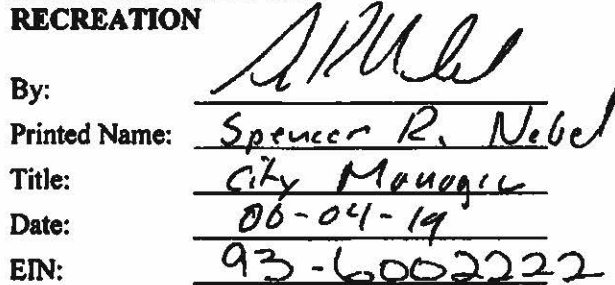 RECREATION
By:
Printed Name: Spencer R. Nebel
Title: City Manager
Date: 06-04-19
EIN: 93-6002222